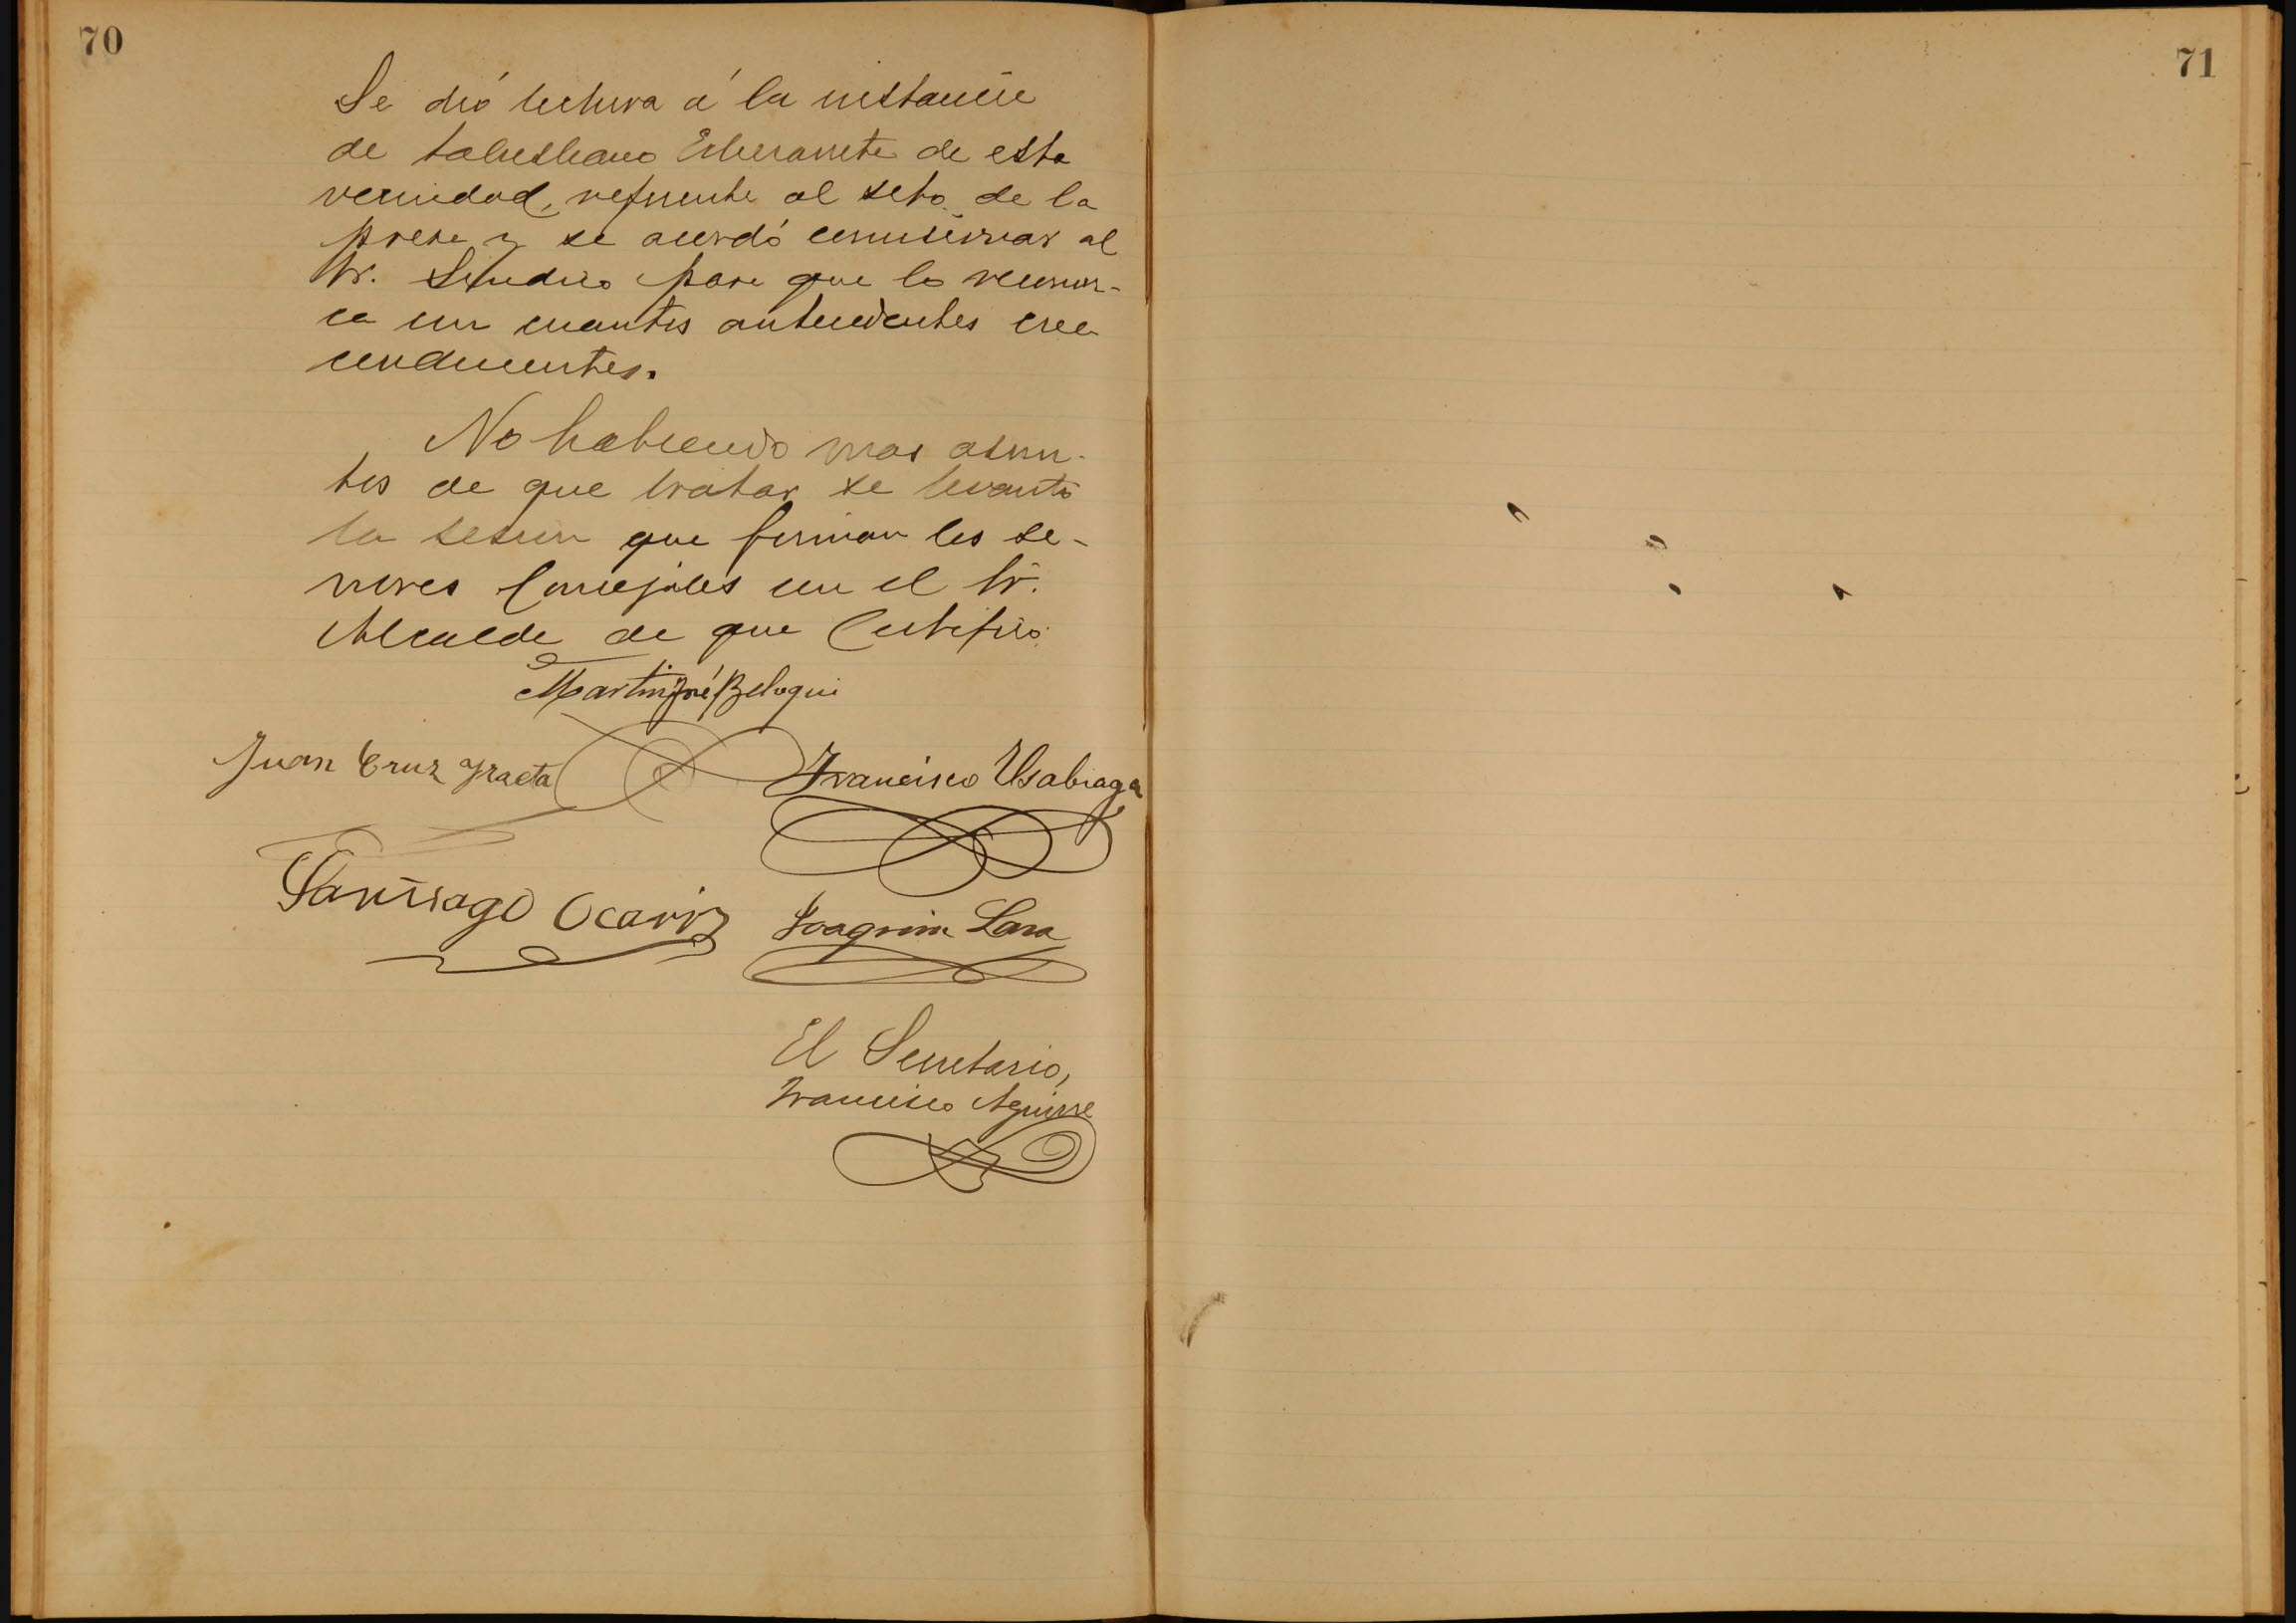 70
Se dió lectura á la instancia
de de esta
vecindad, referente al seto de la
presa y se acordó comisionar al
Sr. Sindico para que lo reconoz-
ca con cuantos antecedentes crea
conducentes.
No habiendo mas asun-
tos de que tratar se levantó
la sesion que firman los se-
ñores Concejales con el Sr.
Alcalde de que Certifico.
Martin José Beloqui
Juan Cruz Yraeta
Francisco Usabiaga
Santiago Ocariz
Joaquin Lasa
El Secretario,
Francisco Aguirre
71